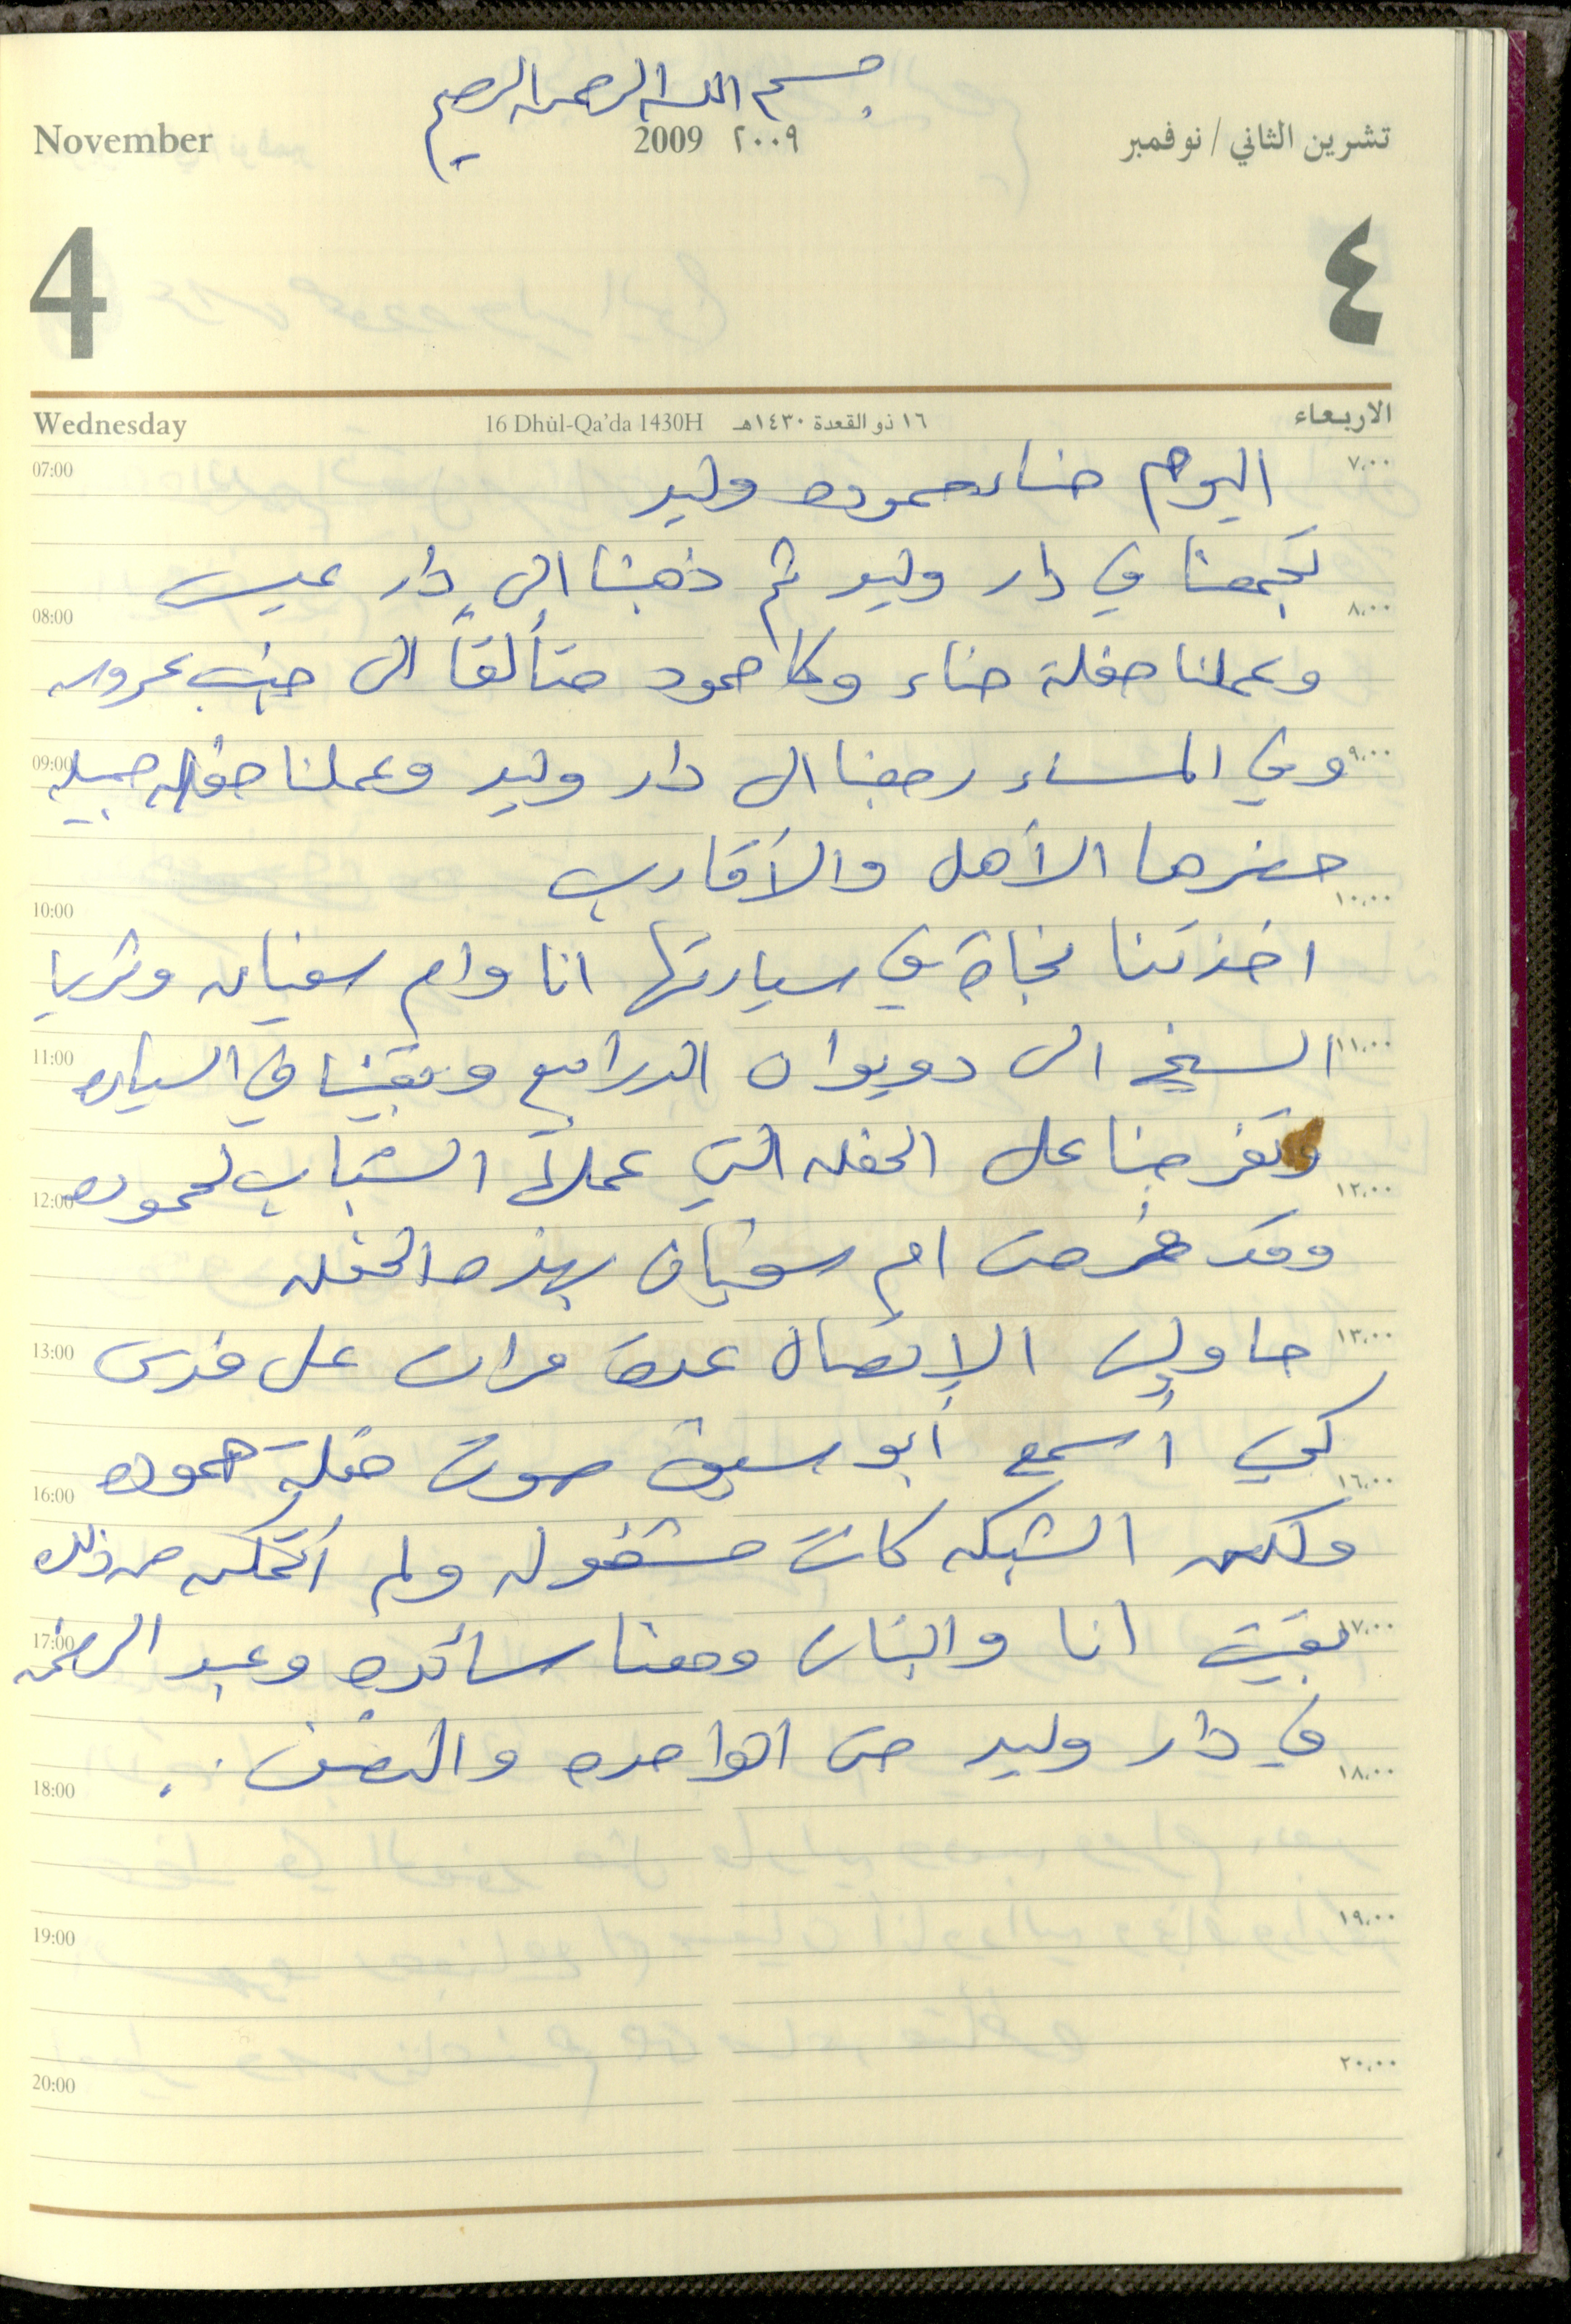 بسم الله الرحمن الرحيم
November 2009 ٢٠٠٩ تشرين الثاني / نوفمبر
4 ٤
Wednesday 16 Dhùl-Qa'da 1430H ١٦ ذو القعدة ١٤٣٠هـ الاربعاء
07:00 اليوم حناء حموده وليد ٧،٠٠
تجمعنا في دار وليد ثم ذهبنا الى دار عيسى
08:00 ٨،٠٠
وعملنا حفلة حناء وكا حمود متألقاً الى جنب عروسه
09:00 وفي المساء رجعنا الى دار وليد وعملنا حفله جميله ٩،٠٠
حضرها الأهل والأقارب
10:00 ١٠،٠٠
اخذتنا نجاة في سيارتها انا وام سفيان وثريا
11:00 السيخ الى دويوان الدرابيع وبقينا في السياره ١١،٠٠
وتفرجنا على الحفله التي عملها الشباب لحموده
12:00 ١٢،٠٠
وقد فرحت ام سفيان بهذه الحفله
13:00 حاولت الإتصال عدة مرات على ١٣،٠٠
كي أسمع أبو سيف صوت حفلة حموده
16:00 ١٦،٠٠
ولكن الشبكه كانت مشغوله ولم أتمكن من ذلك
17:00 بقيت انا والبنات ومعنا سائده وعبد الرحمن ١٧،٠٠
في دار وليد حتى الواحده والنصف ..
18:00 ١٨،٠٠
19:00 ١٩،٠٠
20:00 ٢٠،٠٠